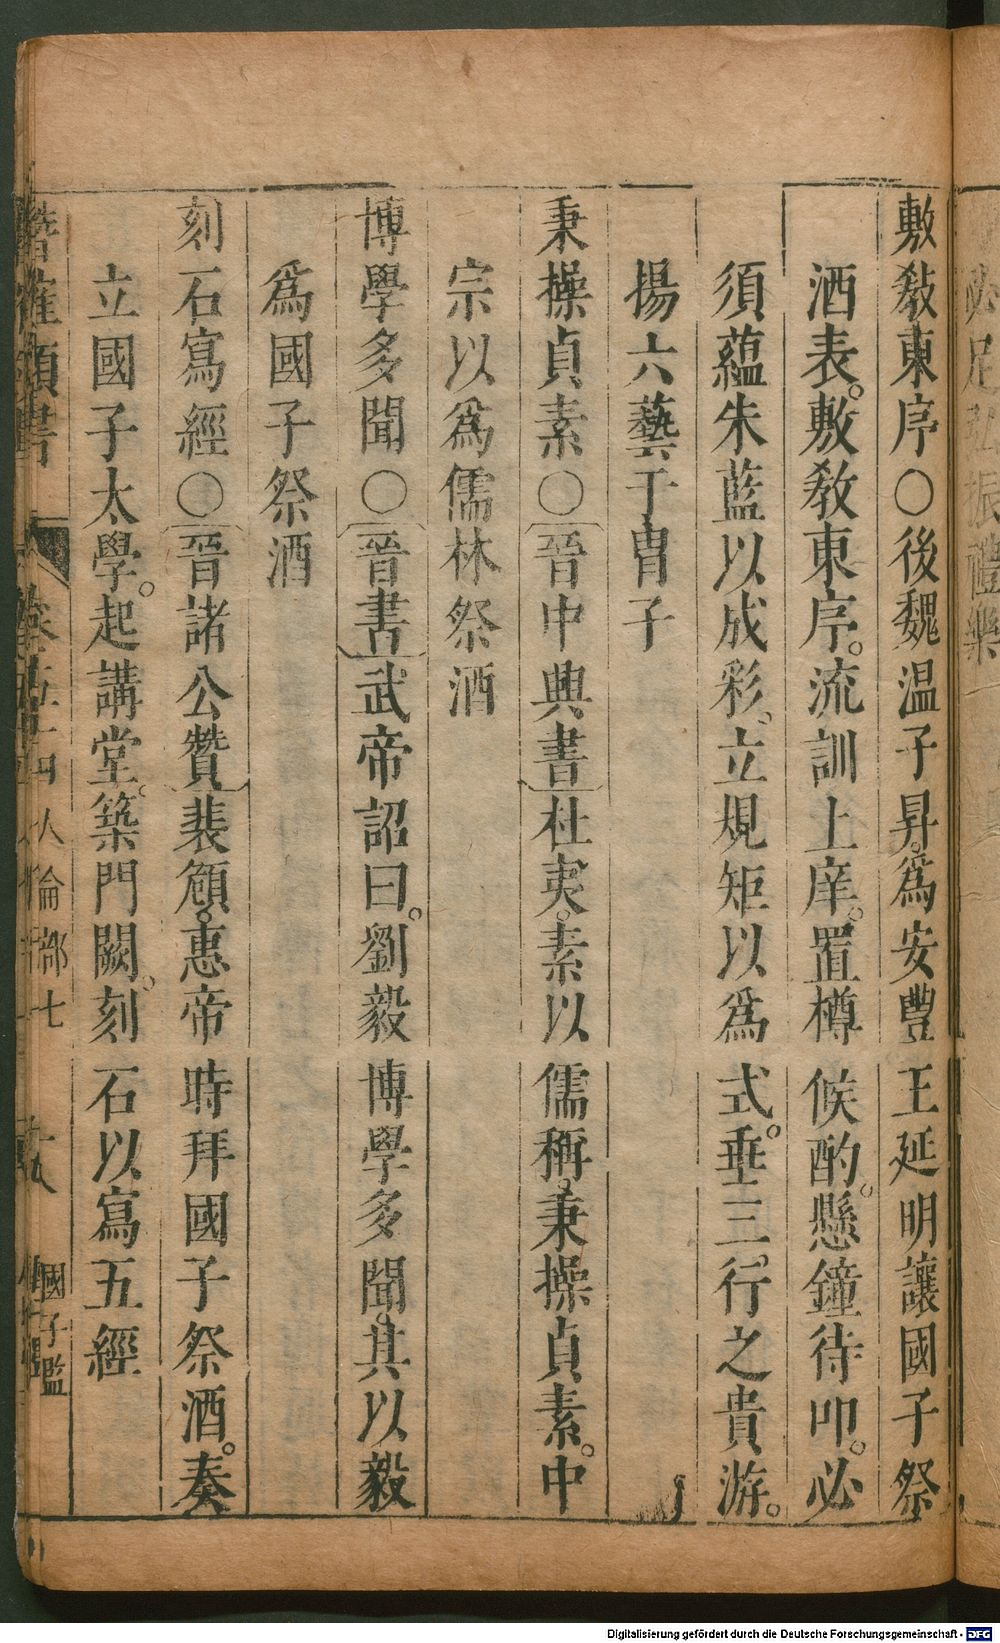 敷敎東序○後魏温子昇爲安豐王延明讓國子祭
酒表。敷敎東序。流訓上庠。置樽候酌。懸鐘待叩。必
須蘊朱藍以成彩。立規矩以爲式。垂三行之貴游。
揚六藝于冑子
秉操貞素○晉中興書杜夷。素以儒稱。秉操貞素。中
宗以爲儒林祭酒
博學多聞○晉書武帝詔曰。劉毅博學多聞。其以毅
爲國子祭酒
刻石寫經○晉諸公贊裴頠。惠帝時拜國子祭酒。奏
立國子太學。起講堂。築門闕。刻石以寫五經
類書
人倫部七
國子監
Digitalisierung gefördert durch die Deutsche Forschungsgemeinschaft - DFG